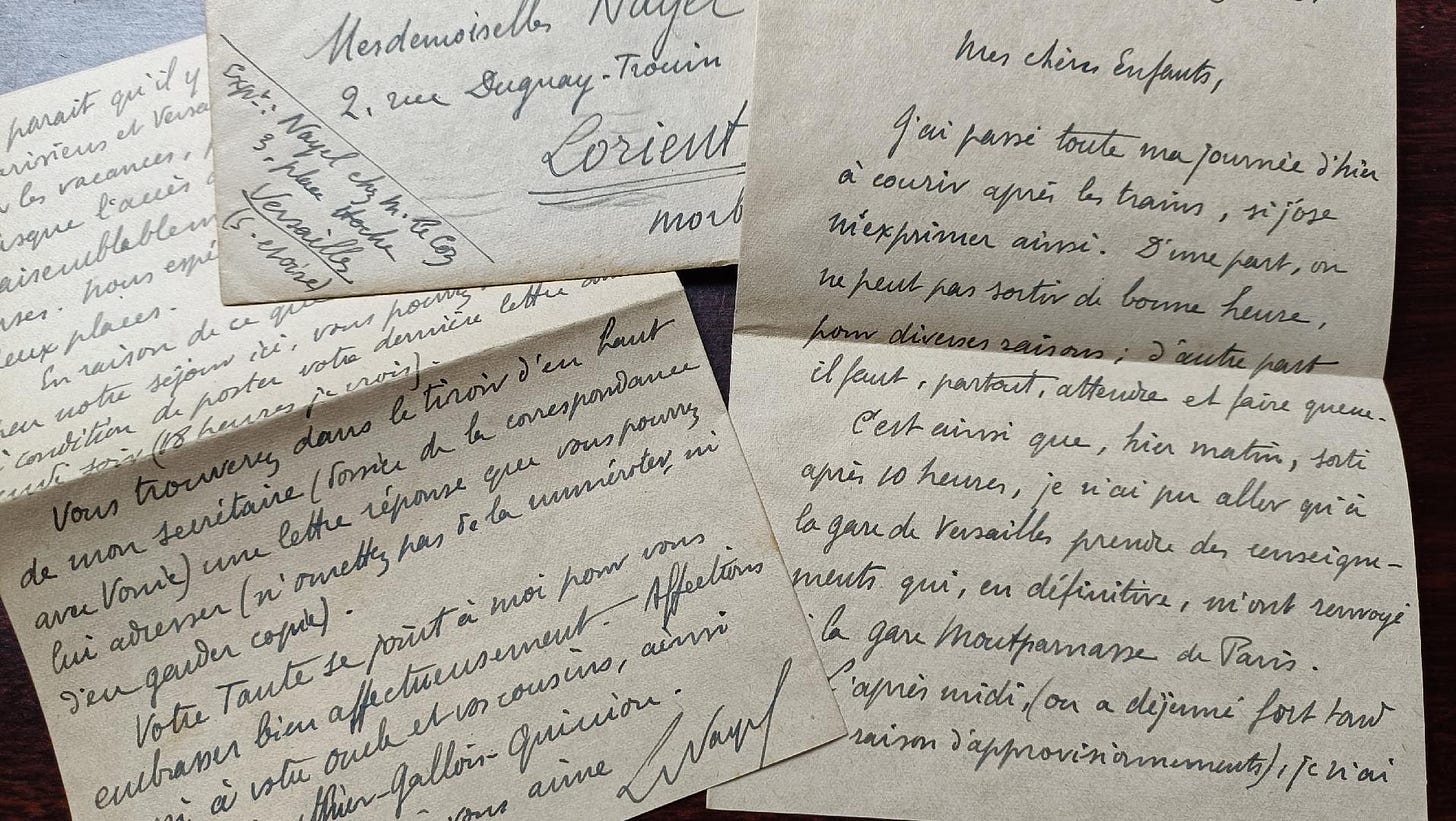 Mesdemoiselles Nayel
2. rue Duguay-Trouin
Lorient
Morb
Expr: Nayel chez M. Le Coz
3, place Hoche
Versailles
(S. et oise)
parait qu'il y
parisiens et Versa
les vacances,
usque l'accès
aisemblablem
nses. Nous espé
eux places.
En raison de ce que
notre séjour ici, vous pourrez
condition de poster votre dernière lettre
soir (18 heures je crois).
Vous trouverez dans le tiroir d'en haut
de mon secrétaire (dossier de la correspondance
avec Vonie) une lettre réponse que vous pourrez
lui adresser (n'omettez pas de la numéroter, ni
d'en garder copie).
Votre Tante se joint à moi pour vous
embrasser bien affectueusement. Affections
à votre oncle et vos cousins, ainsi
thier-Gallois-Quinion.
vous aime
LNayel
Mes chères Enfants,
J'ai passé toute ma journée d'hier
à courir après les trains, si j'ose
m'exprimer ainsi. D'une part, on
ne peut pas sortir de bonne heure,
pour diverses raisons; d'autre part
il faut, partout, attendre et faire queue.
C'est ainsi que, hier matin, sorti
après 10 heures, je n'ai pu aller qu'à
la gare de Versailles prendre des renseigne-
ments qui, en définitive, m'ont renvoyé
la gare Montparnasse de Paris.
L'après midi, (on a déjeuné fort tard
raison d'approvisionnements), je n'ai